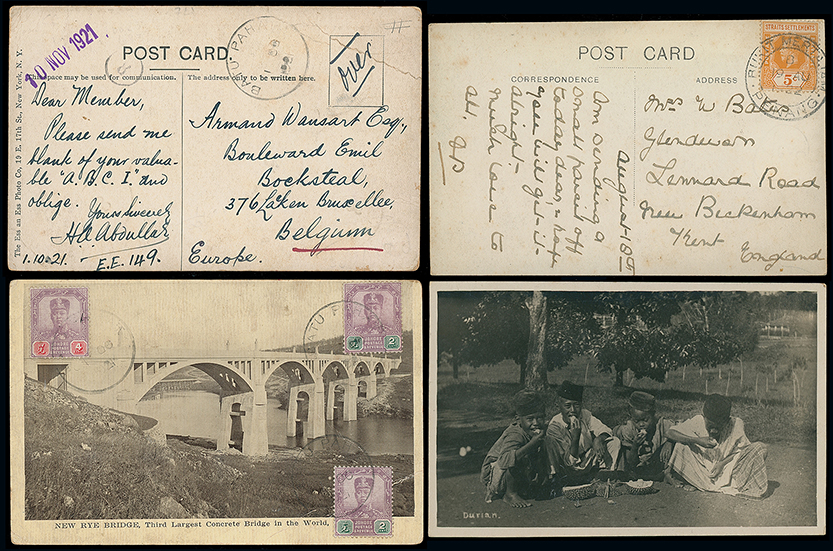 10 NOV 1921
POST CARD
BATU PAH
This space may be used for communication.
The address only to be written here.
over
The Ess an Ess Photo Co, 19 E. 17th St., New York, N. Y.
Dear Member,
Please send me
blank of your valua-
ble "A.B.C I." and
oblige.
Yours Sincerely
HA Abdullah
1.10.21.
E.E. 149.
Armand Wansart Esq.,
Bouleward Emil
Bocksteal,
376 Laken Bruxellee,
Belgium
Europe.
POST CARD
CORRESPONDENCE
ADDRESS
STRAITS SETTLEMENTS
5c
BUKIT MERTAJAM
PENANG
August 18th
Am sending a
small parcel off
today dear & hope
you will get it
alright -
Much love to
all,
Mrs W Baker
Glendevon
Lennard Road
New Beckenham
Kent
England
4
JOHORE
POSTAGE
& REVENUE
2
JOHORE
POSTAGE
& REVENUE
BATU P
2
JOHORE
POSTAGE
& REVENUE
NEW RYE BRIDGE, Third Largest Concrete Bridge in the World,
Durian.